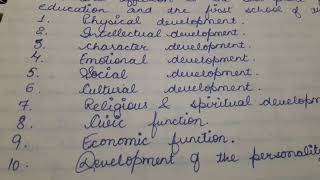 education and the first school of
1. Physical development.
2. Intellectual development.
3. Character development.
4. Emotional development.
5. Social development.
6. Cultural development.
7. Religious & spiritual developm
8. Civic function.
9. Economic function.
10. Development of the personality